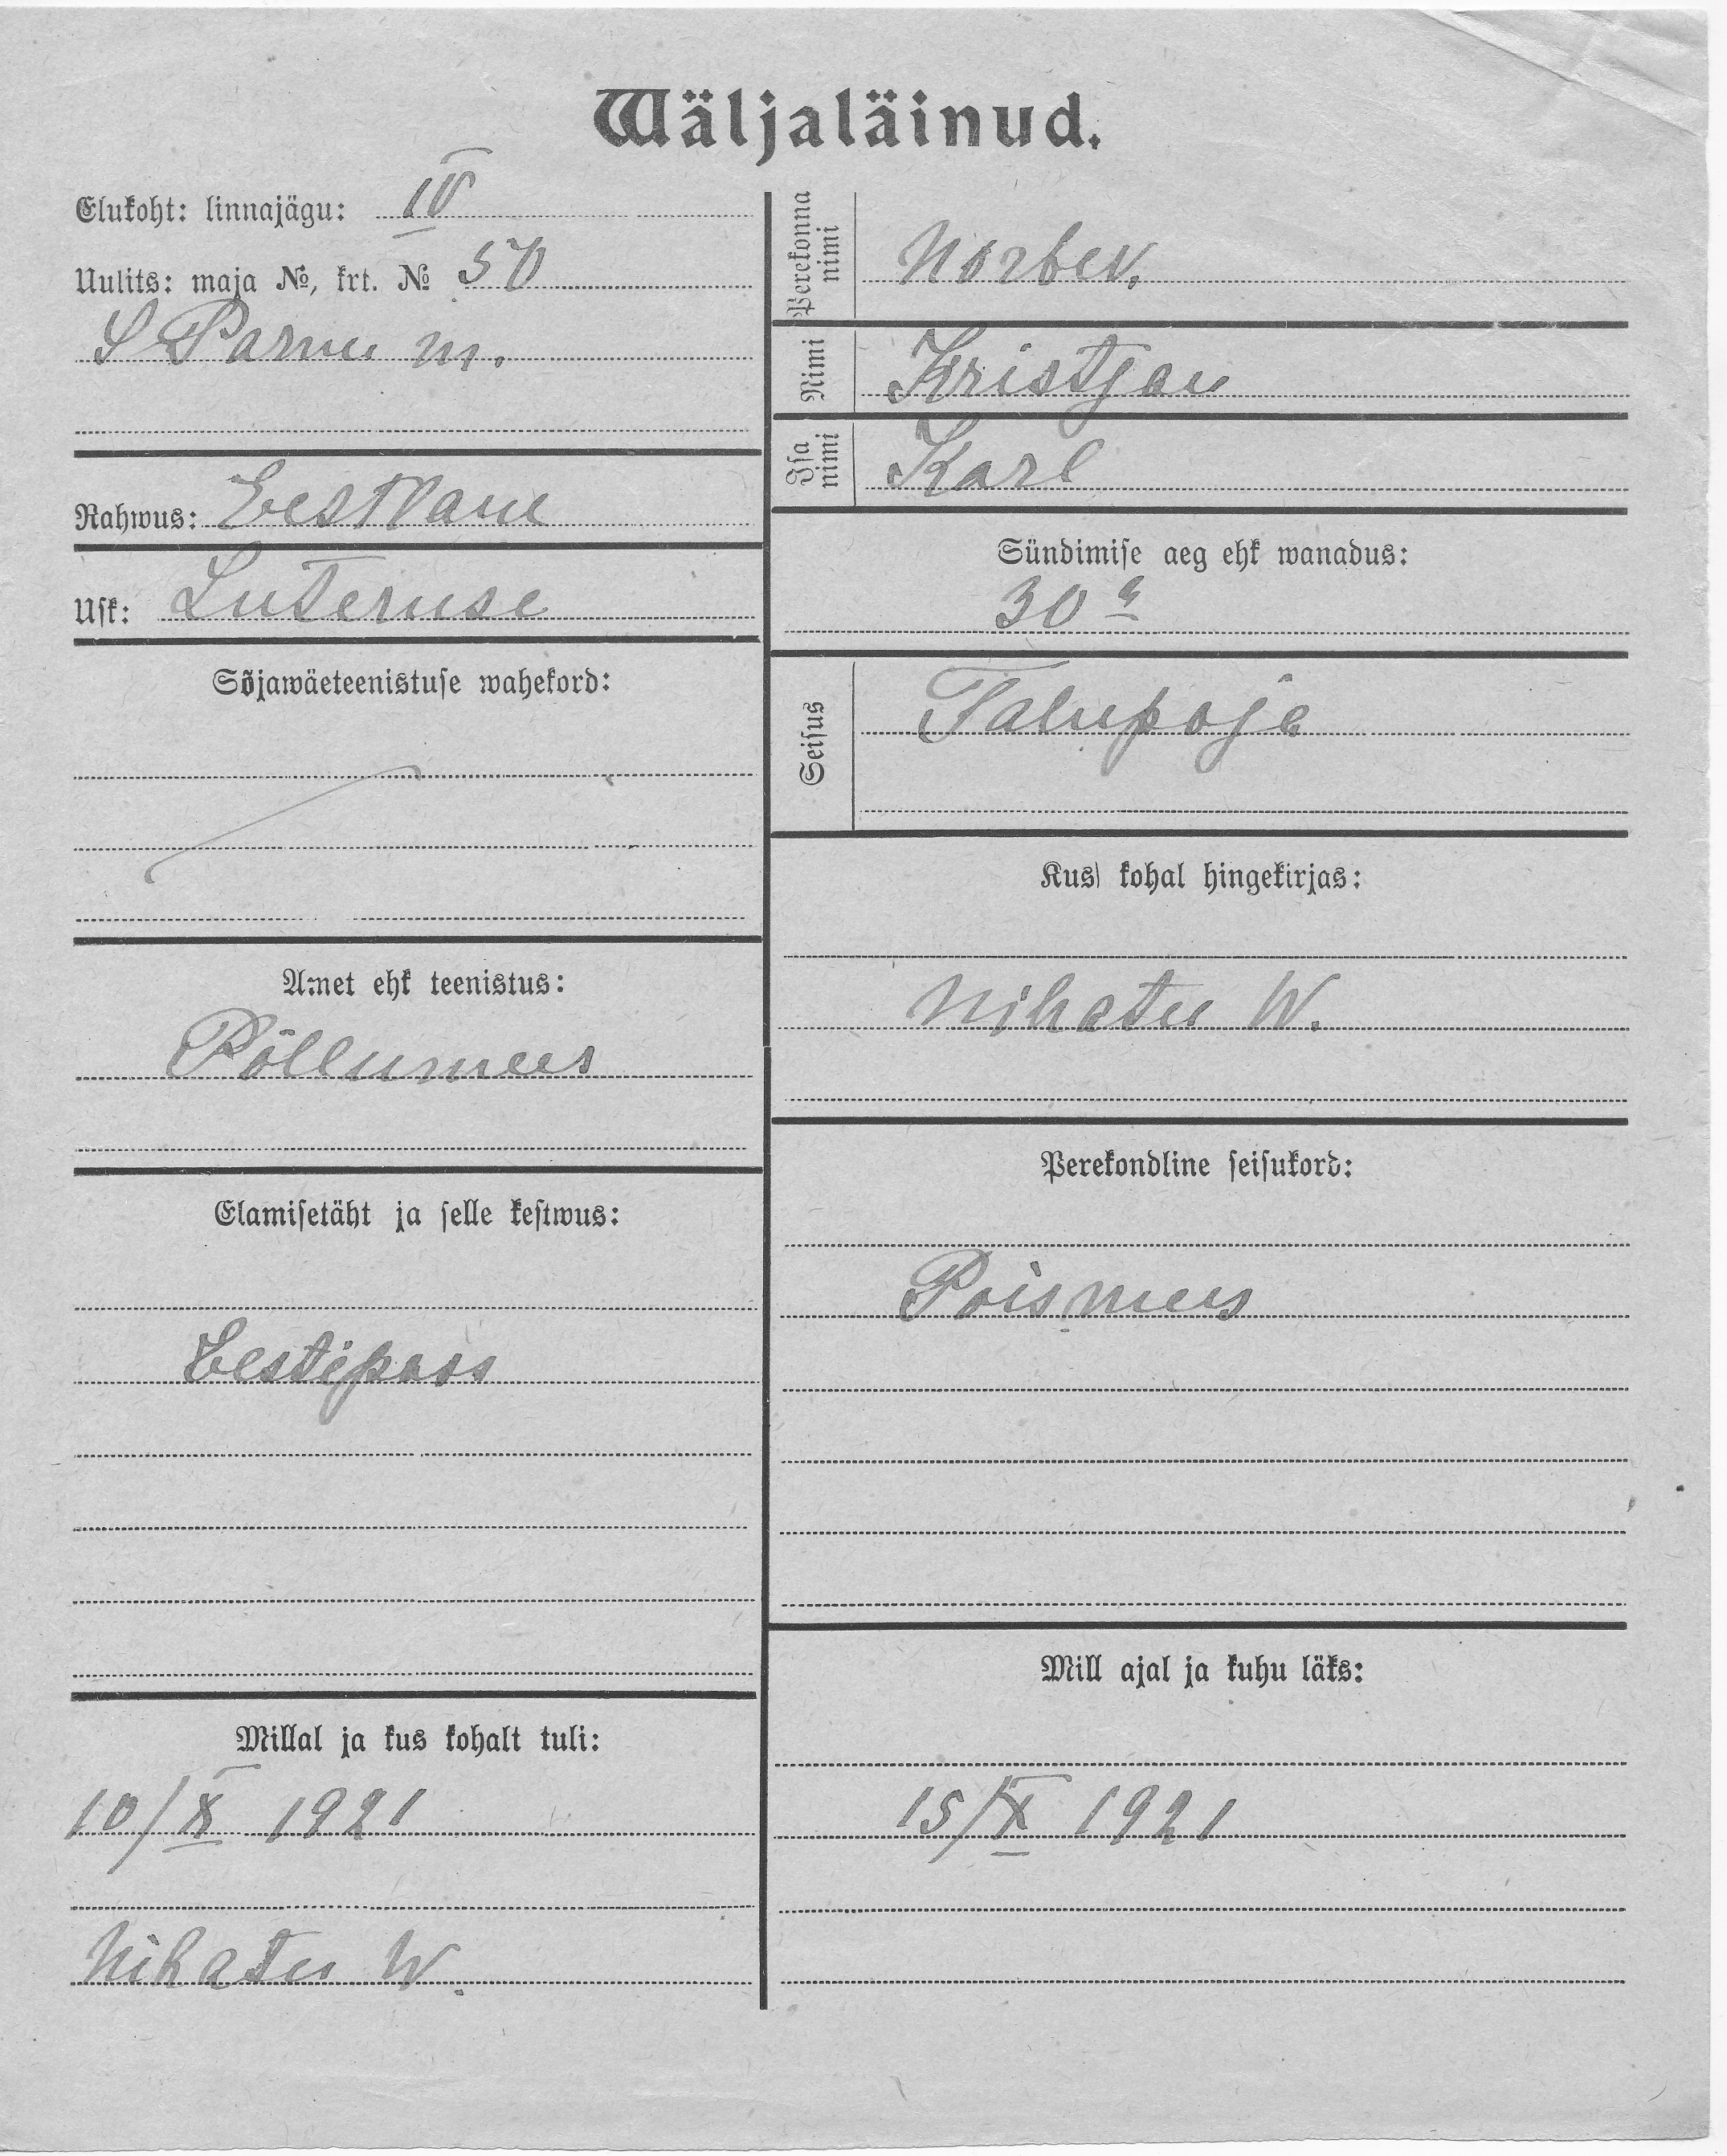 Wäljaläinud.
Elukoht: linnajägu: IV
Uulits: maja №, krt. № 50
S Parnu m.
Rahwus: Eestlane
Usk: Luteruse
Sõjawäeteenistuse wahekord:
Amet ehk teenistus:
Põllumees
Elamisetäht ja selle kestwus:
Eestipass
Millal ja kus kohalt tuli:
10/X 1921
Nihatu W.
Perekonna nimi
Nimi Kristjan
Isa nimi Karl
Sündimise aeg ehk wanadus:
30 a
Seisus Talupoja
Kus kohal hingekirjas:
Nihatu W.
Perekondline seisukord:
Poismees
Mill ajal ja kuhu läks:
15/X 1921